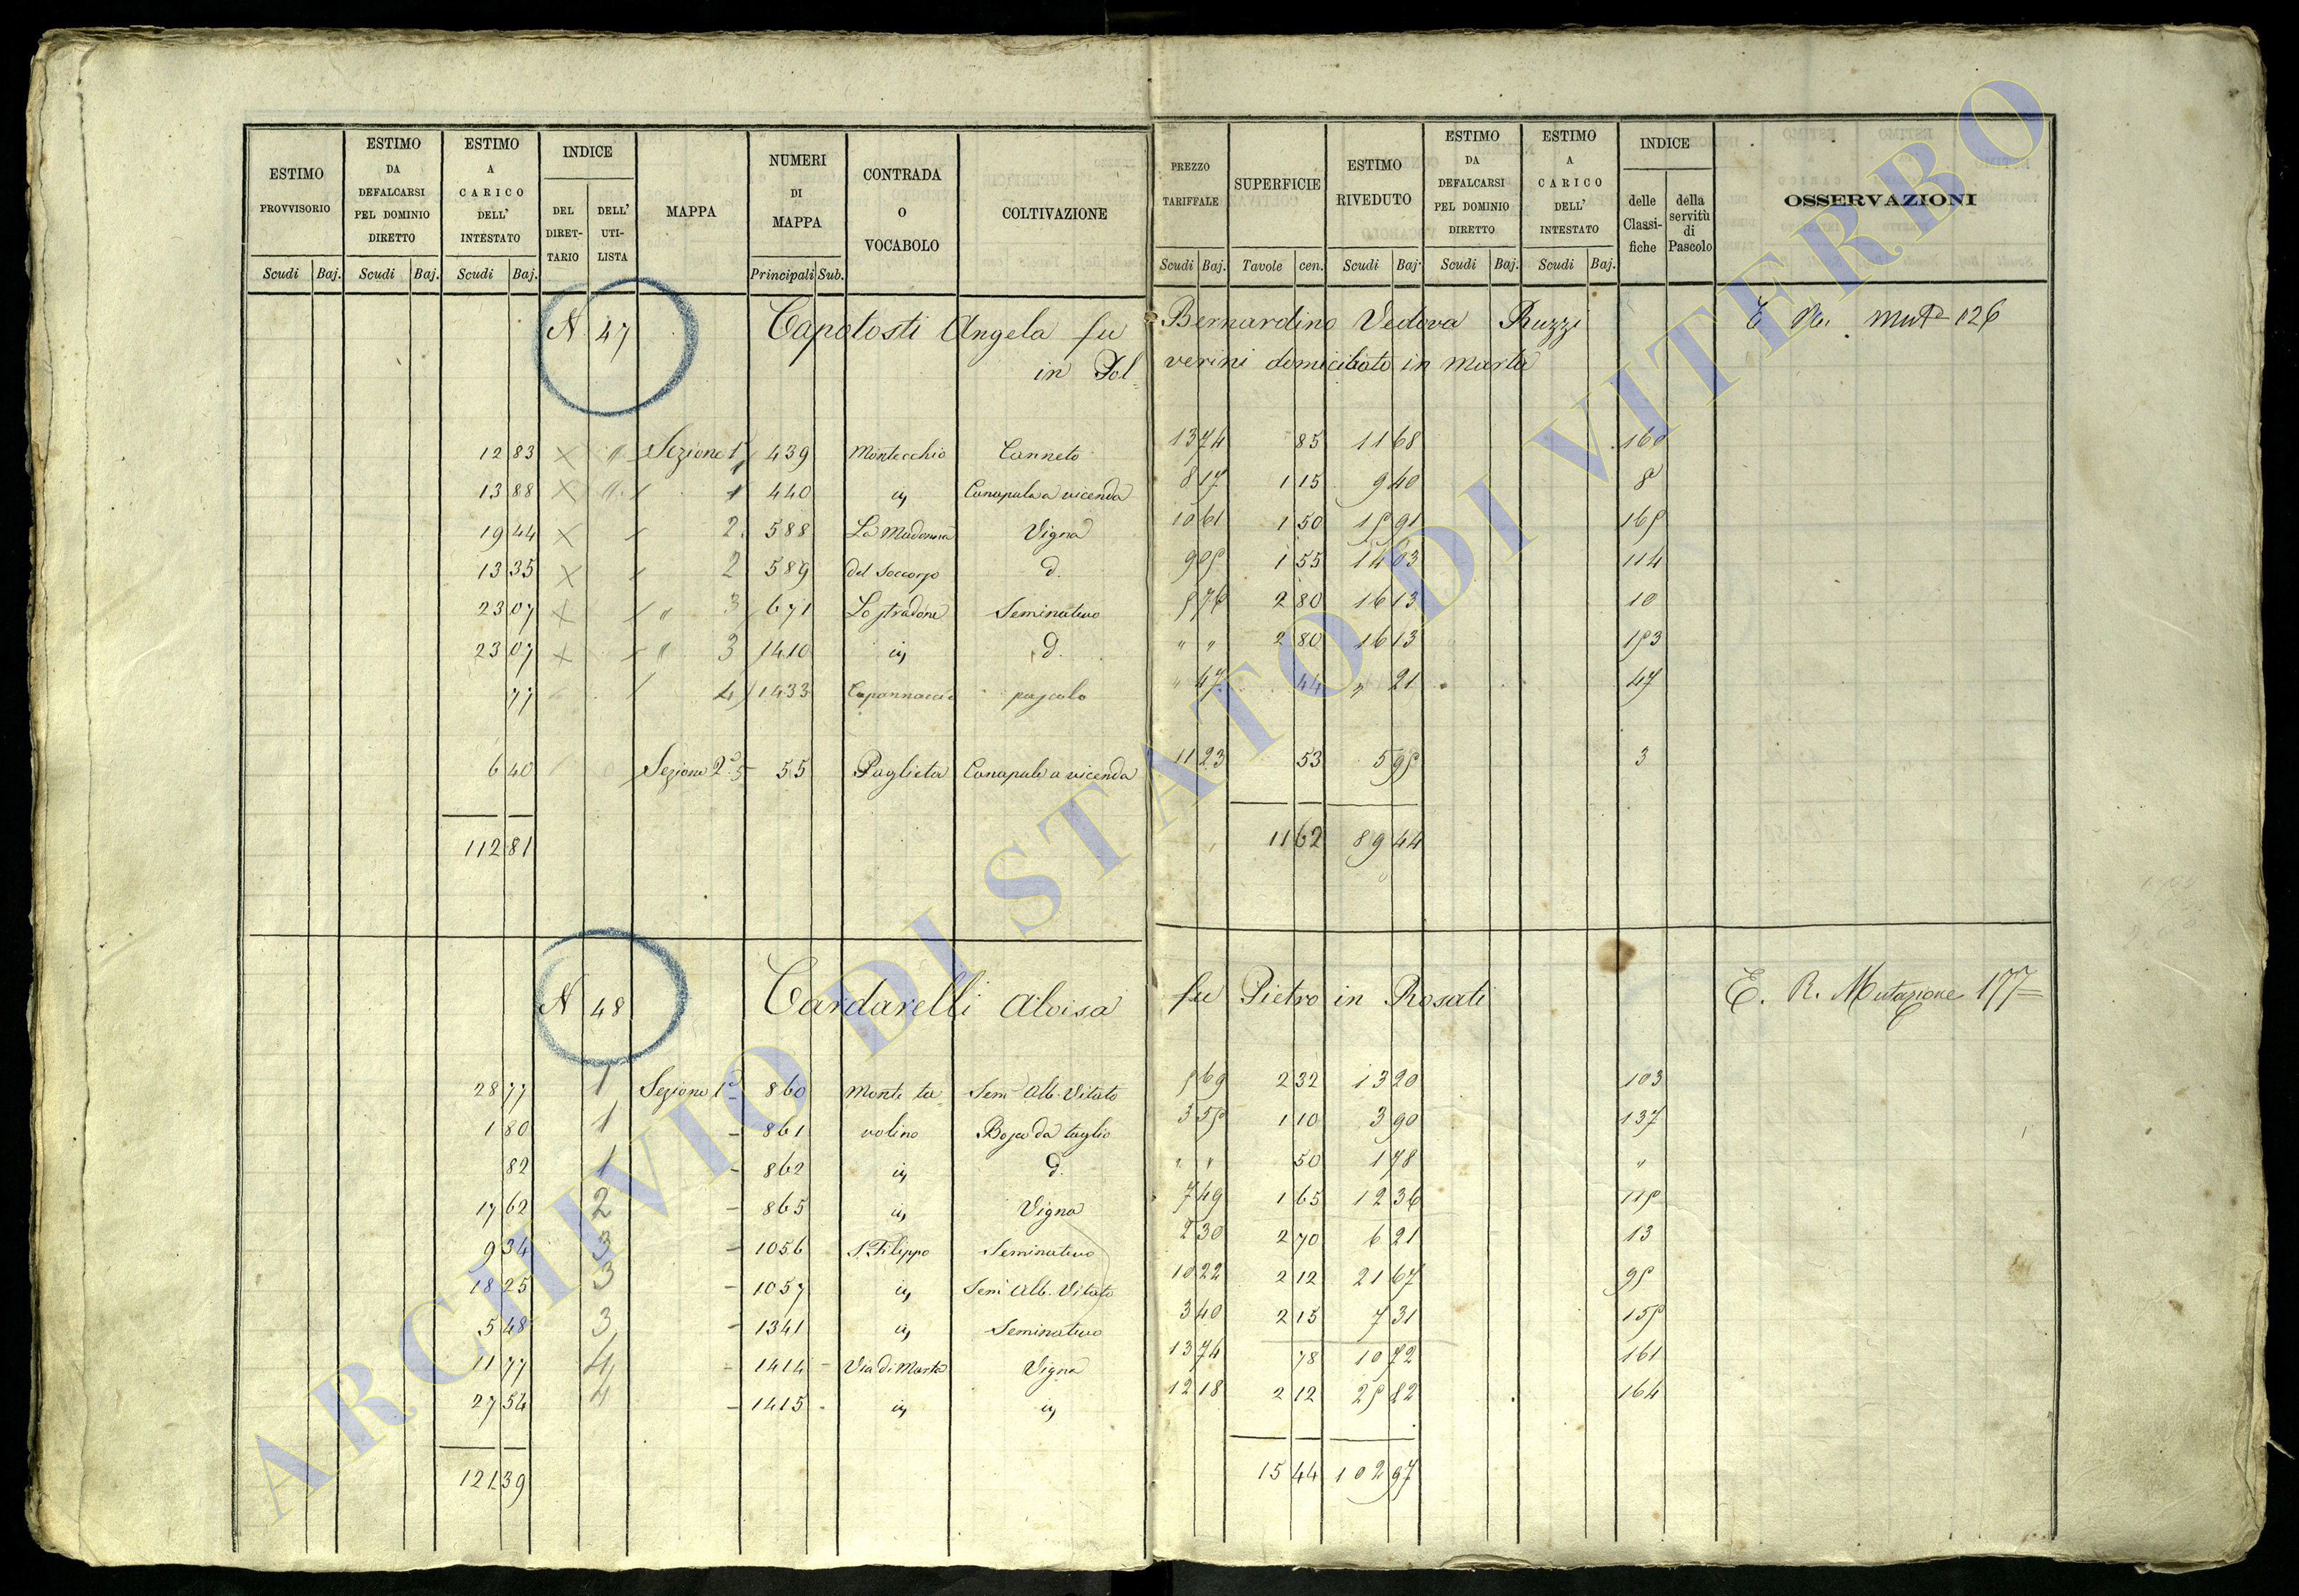 ESTIMO PROVVISORIO | ESTIMO DA DEFALCARSI PEL DOMINIO DIRETTO | ESTIMO A CARICO DELL' INTESTATO | INDICE | MAPPA | NUMERI DI MAPPA | CONTRADA O VOCABOLO | COLTIVAZIONE | PREZZO TARIFFALE | SUPERFICIE | ESTIMO RIVEDUTO | ESTIMO DA DEFALCARSI PEL DOMINIO DIRETTO | ESTIMO A CARICO DELL' INTESTATO | INDICE | OSSERVAZIONI
DEL DIRET-TARIO | DELL' UTI-LISTA | delle Classi-fiche | della servitù di Pascolo
Scudi | Baj. | Scudi | Baj. | Scudi | Baj. | Principali | Sub. | Scudi | Baj. | Tavole | cen. | Scudi | Baj. | Scudi | Baj. | Scudi | Baj.
N 47 Capotosti Angela fu Bernardino Vedova Ruzzi E R. mut 126
in Pol= verini domiciliato in Marta
12 83 × " Sezione 1 439 Montecchio Canneto 13 74 85 11 68 160
13 88 × " 1 440 id Canapula a vicenda 8 17 1 15 9 40 8
19 44 × 2 588 La Madonna Vigna 10 61 1 50 15 91 165
13 35 × 2 589 del Soccorso d. 9 05 1 55 14 03 114
23 07 × " 3 671 Lo stradone Seminativo 5 76 2 80 16 13 10
23 07 × " 3 1410 id d. " " 2 80 16 13 153
77 4 1433 Capannaccie pascolo " 47 44 " 21 47
6 40 Sezione 2ª 5 55 Paglieta Canapule a vicenda 11 23 53 5 95 3
112 81 11 62 89 44
N 48 Cardarelli Aloisa fu Pietro in Rosati E. R. Mutazione 177=
28 77 1 Sezione 1ª 860 Monte ta= Sem Alb. Vitato 5 69 2 32 13 20 103
1 80 1 - 861 volino Bosco da taglio 3 55 1 10 3 90 137
82 1 - 862 id d. " " 50 1 78 "
17 62 2 - 865 id Vigna 7 49 1 65 12 36 115
9 34 3 - 1056 S. Filippo Seminativo 2 30 2 70 6 21 13
18 25 3 - 1057 id Sem Alb. Vitato 10 22 2 12 21 67 95
5 48 3 - 1341 id Seminativo 3 40 2 15 7 31 155
11 77 4 - 1414 Via di Marta Vigna 13 74 78 10 72 161
27 54 4 - 1415 id id 12 18 2 12 25 82 164
121 39 15 44 102 97
ARCHIVIO DI STATO DI VITERBO